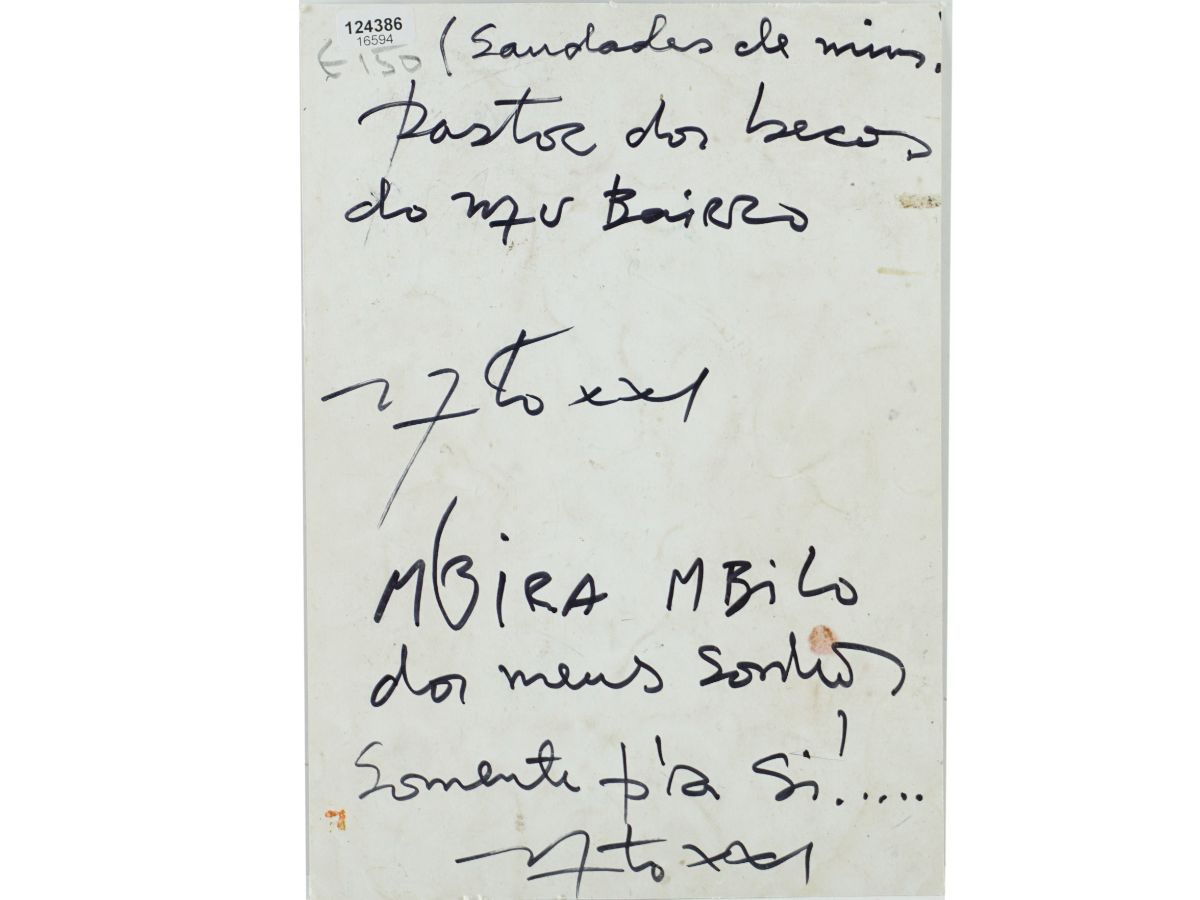 124386
16594
£150 (Saudades de mim.
Pastor dos becos
do meu Bairro
MBIRA MBILO
dos meus sonhos
Somente p'ra Si!.....